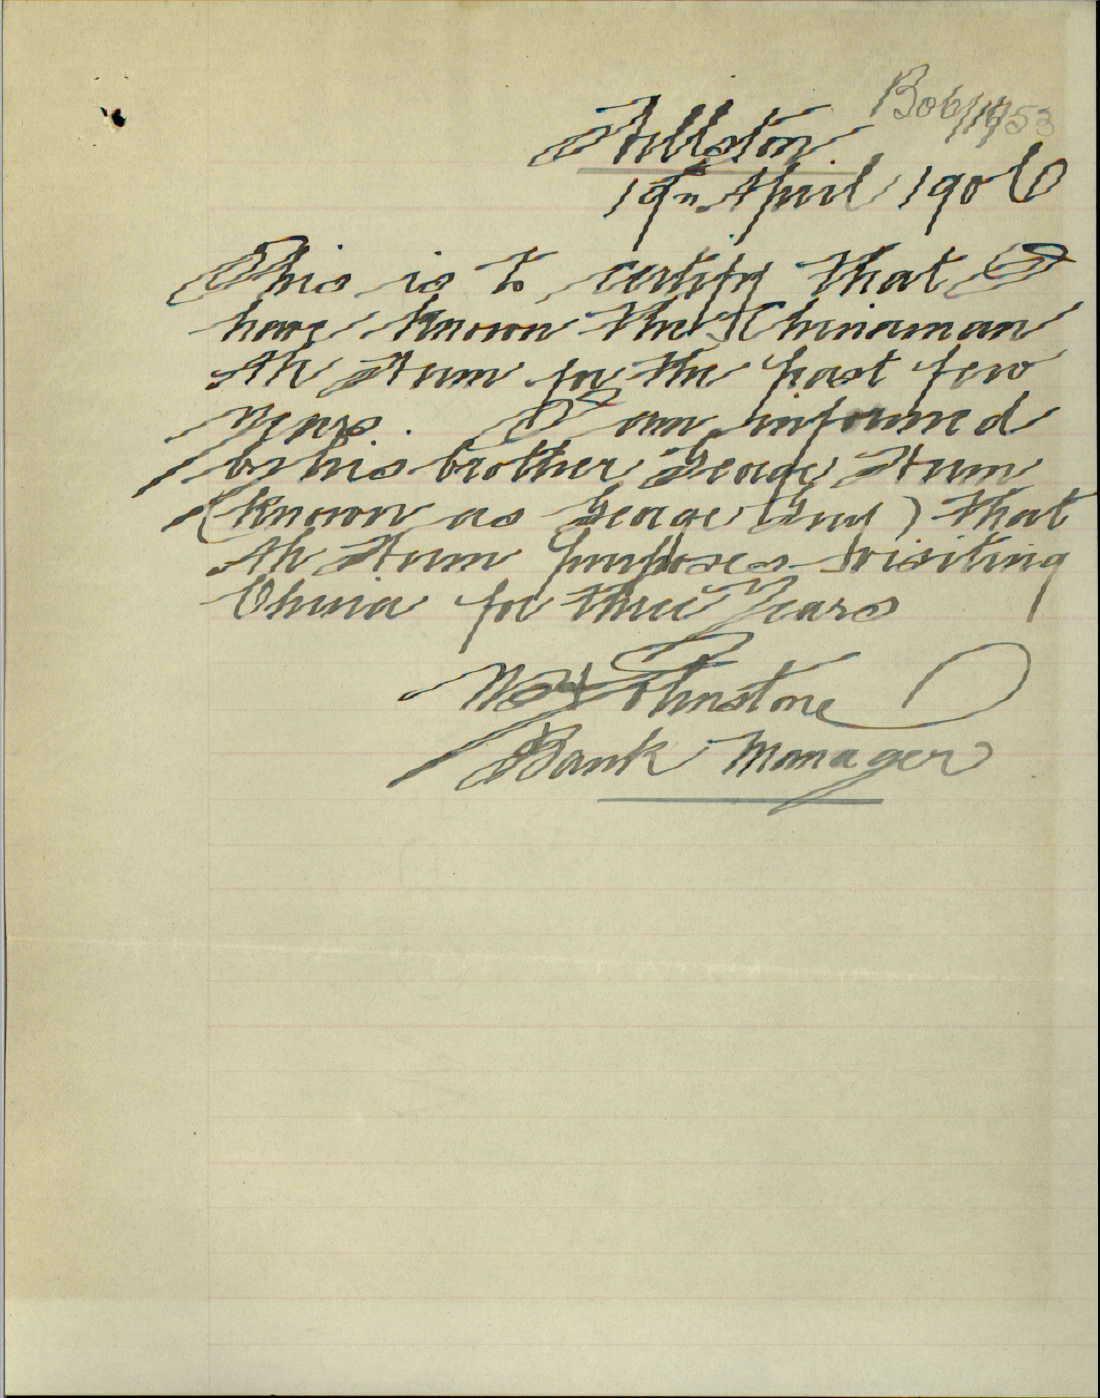 B06/1953
Hillston
19th April 1906
This is to certify that I
have known the Chinaman
Ah Hum for the past few
years. I am informed
by his brother George Hum
(known as George Guy) that
Ah Hum purposes visiting
China for three years
Johnstone
Bank Manager